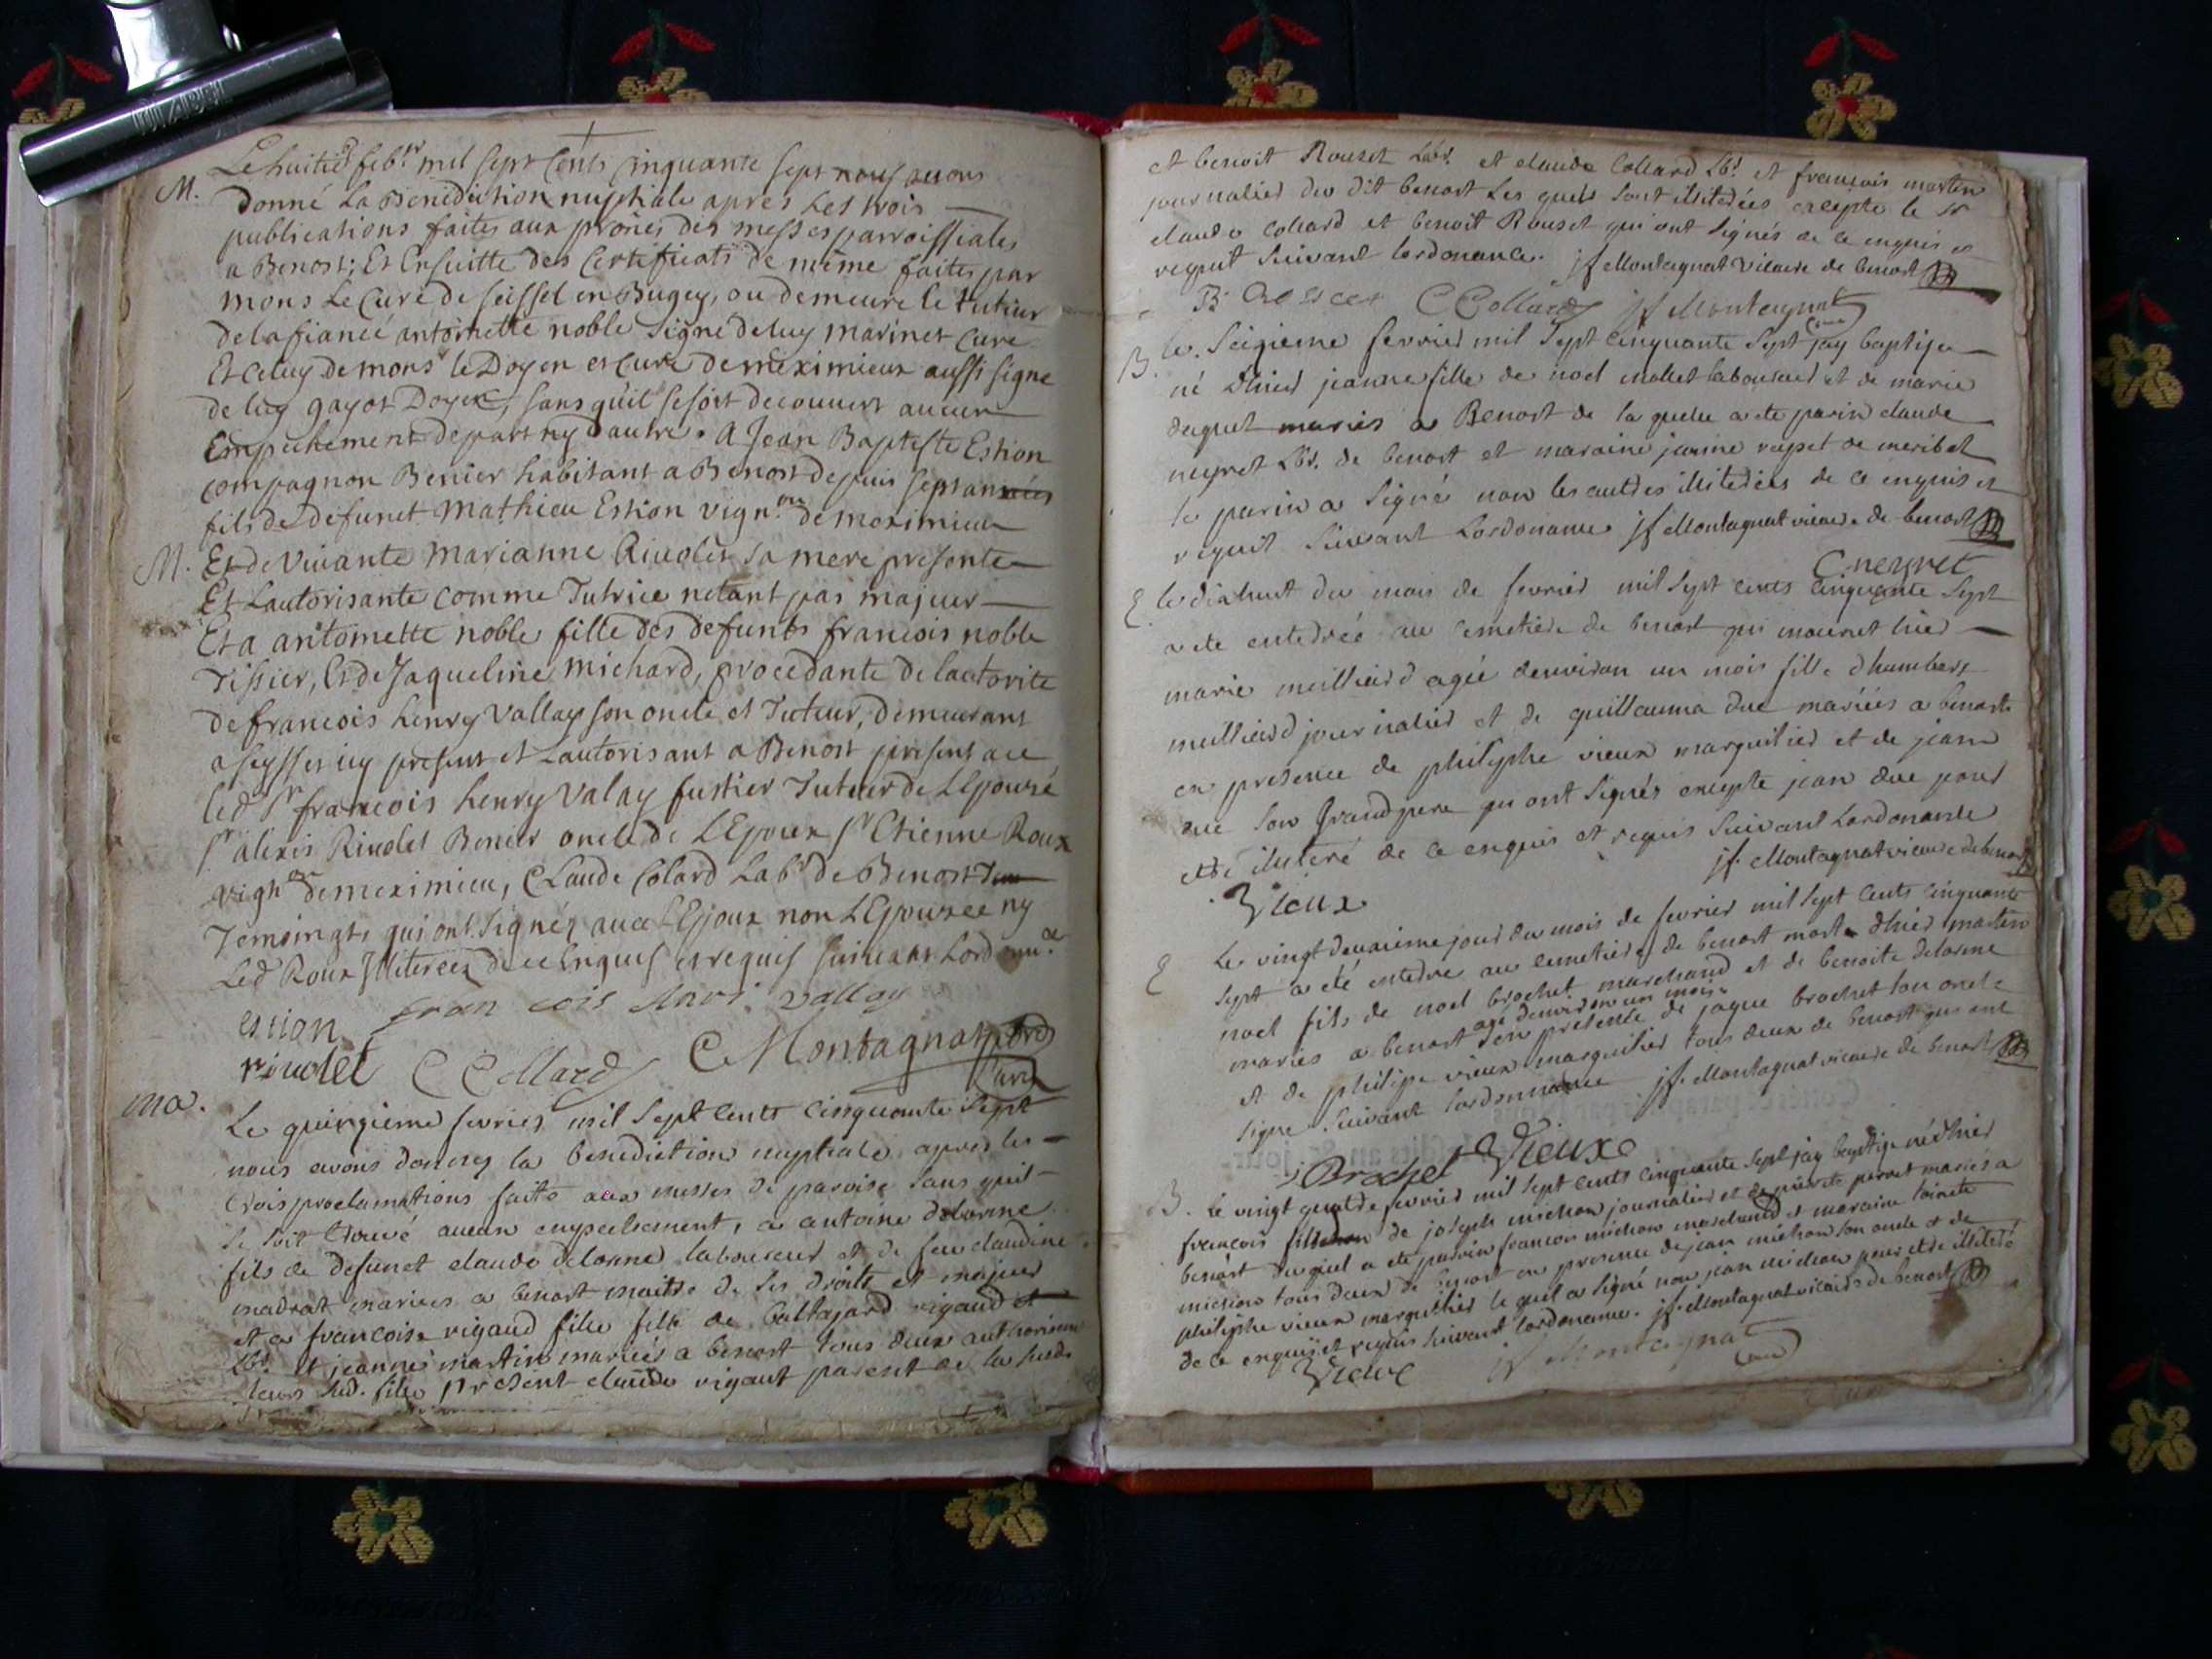 Le huiti^e feb^r mil sept Cents cinquante sept nous avons
M. donné La Benediction nuptiale apres Les trois
publications faites aux prônes des messes parroissiales
a Benost; Et Ensuitte des Certificats de même faites par
mons Le Curé de seissel en Bugey, ou demeure le tuteur
de la fiancée antoinette noble signé de luy marinet Curé
Et celuy de mons^r le Doyen et curé de meximieux aussi signé
de luy gayot Doyen, sans qu'il se soit decouvert aucun
Empechement de part ny d'autre. A Jean Baptiste Estion
compagnon Benier habitant a Benost depuis sept années
fils de defunct Mathieu Estion vign^on de meximieux
M. Et de vivante marianne Rivolet sa mere presente
Et Lautorisante comme Tutrice netant pas majeur
Et a antoinette noble fille des defunts francois noble
Tissier, Et de Jaqueline michard, procedante de lautorite
de francois henry vallay son oncle et Tuteur, demeurant
a seyssel icy present et Lautorisant a Benost present ace
led^t s^r francois henry valay fustier Tuteur de LEpousé
s^r alexis Rivolet Benier oncle de LEpoux s^r Etienne Roux
vign^on de meximieu, Claude Colard Lab^r de Benost
Temoingts qui ont signéz avec LEpoux non LEpousee ny
Led^t Roux Illiterez de ce Enquis et requis suivant Lordonn^ce
fran cois Anri vallay
estion
rivolet C Collard C Montagnat
Curé
ma. Le quinzieme fevrier mil sept cents cinquante sept
nous avons donnez la benediction nuptiale apres les
trois proclamations faite aux messes de paroise sans quil
se soit trouvé aucun empeschement, a antoine delorme
fils de defunct claude delorme laboureur et de feu claudine
madrat mariees a benost maitre de ses droits et majeur
et a francoise rigaud fille de baltazard rigaud et
Lbr. et jeanne martin mariés a benost tous deux authorisent
leurs sud. fille present claude rigaut parent de la susde
et benoit Rouset Labr. et claude Collard Lbr. et francois martin
journalier du dit benost Les quels sont illiterées excepte le sr
claude collard et benoit Rouset qui ont signés de ce enquis et
requit suivant lordonance. jf Montagnat vicaire de benost
B C Collard jf Montagnat
B. le seizieme fevrier mil sept cinquante sept jay baptise
né dhier jeanne fille de noel mollet laboureur et de marie
duquet mariés a Benost de la quelle a ete parin claude
neyret Lbr. de benost et maraine jeanne
le parin a signé non les autres illiterées de ce enquis et
requit suivant Lordonance jf Montagnat vicaire de benost
C neyret
E. le dixhuit du mois de fevrier mil sept cents cinquante sept
a ete enterrée au cemetiere de benost qui mouret hier
marie meilliard agée denviron un mois fille dhumbert
meilliard journalier et de guillauma duc mariées a benost
en presence de philiphe vieux marguilier et de jean
duc son grandpere qui ont signés excepte jean duc pour
etre illiteré de ce enquis et requis suivant Lordonance
jf. Montagnat vicaire de benost
Vieux
E Le vingt deuxieme jour du mois de fevrier mil sept cents cinquante
sept a eté enterre au cemetiere de benost mort dhier martin
noel fils de noel brochet marchand et de benoite delorme
mariés a benost agé denviron un mois en presence de jaque brochet son oncle
et de philipe vieux marguilier tous deux de benost qui ont
signe suivant lordonnance jf. Montagnat vicaire de benost
j Brochet Vieux
B. Le vingt quatre fevrier mil sept cents cinquante sept jay baptize né dhier
francois fils de joseph michon journalier et de pierrete perret mariés a
benost duquel a ete parin francois michon marchand et maraine
michon tous deux de benost en presence de jean michon son oncle et de
philiphe vieux marguillier le quel a signé non jean michon pour etre illiteré
de ce enquis et requis suivant lordonance. jf. Montagnat vicaire de benost
Vieux jf Montagnat